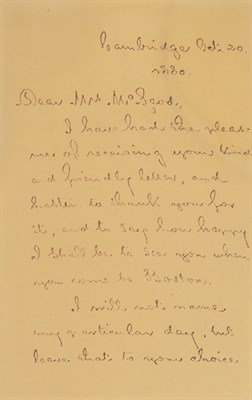 Cambridge Oct. 20.
1880.
Dear Mrs.
I have had the pleas-
ure of receiving your kind
and friendly letter, and
hasten to thank you for
it, and to say how happy
I shall be to see you when
you come to Boston.
I will not name
any particular day, but
leave that to your choice